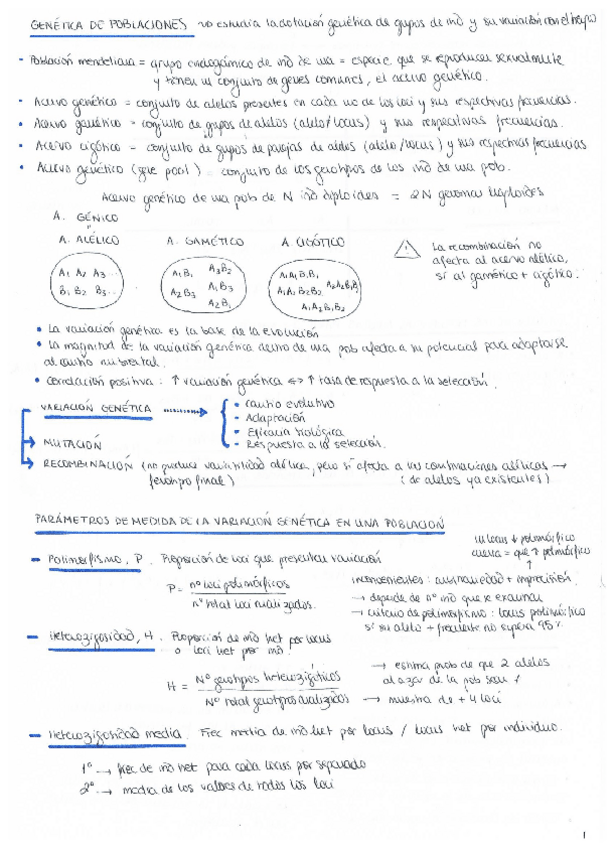 GENÉTICA DE POBLACIONES → estudia la dotación genética de grupos de ind y su variación con el tiempo
- Población mendeliana = grupo endogámico de ind de una = especie que se reproducen sexualmente
y tienen un conjunto de genes comunes, el acervo genético.
• Acervo genético = conjunto de alelos presentes en cada uno de los loci y sus respectivas frecuencias.
• Acervo gamético = conjunto de grupos de alelos (alelo/locus) y sus respectivas frecuencias.
• Acervo cigótico = conjunto de grupos de parejas de alelos (alelo/locus) y sus respectivas frecuencias
• Acervo genético (gene pool) conjunto de los genotipos de los ind de una pob.
Acervo genético de una pob de N ind diploides = 2N genomas haploides
A. GÉNICO
"
A. ALÉLICO A. GAMÉTICO A. CIGÓTICO
A₁ A₂ A₃...
B₁ B₂ B₃...
A₁B₁ A₃B₂
A₂B₃ A₁B₃
A₂B₁
A₁A₁B₁B₁
A₁A₁B₂B₂ A₂A₂B₁B₁
A₁A₂B₁B₂
! La recombinación no
afecta al acervo alélico,
sí al gamético + cigótico.
• La variación genética es la base de la evolución
• La magnitud de la variación genética dentro de una pob afecta a su potencial para adaptarse
al cambio ambiental.
• Correlación positiva: ↑ variación genética <=> ↑ tasa de respuesta a la selección.
VARIACIÓN GENÉTICA
• Cambio evolutivo
- Adaptación
• Eficacia biológica
- Respuesta a la selección.
→ MUTACIÓN
→ RECOMBINACIÓN (no produce variabilidad alélica, pero sí afecta a las combinaciones alélicas →
fenotipo final) (de alelos ya existentes)
PARÁMETROS DE MEDIDA DE LA VARIACIÓN GENÉTICA EN UNA POBLACIÓN
un locus ↓ polimórfico
cuenta = que ↑ polimórfico
- Polimorfismo, P. Proporción de loci que presentan variación
P = nº loci polimórficos
nº total loci analizados.
inconvenientes: arbitrariedad + imprecisión.
→ depende de nº ind que se examinan
→ criterio de polimorfismo: locus polimórfico
si su alelo + frecuente no supera 95%
- Heterozigosidad, H. Proporción de ind het por locus
o loci het por ind.
H = Nº genotipos heterozigóticos
Nº total genotipos analizados
→ estima prob de que 2 alelos
al azar de la pob sean ≠
→ muestra de + 4 loci
- Heterozigosidad media. Frec media de ind het por locus / locus het por individuo.
1º → frec de ind het para cada locus por separado
2º → media de los valores de todos los loci
1